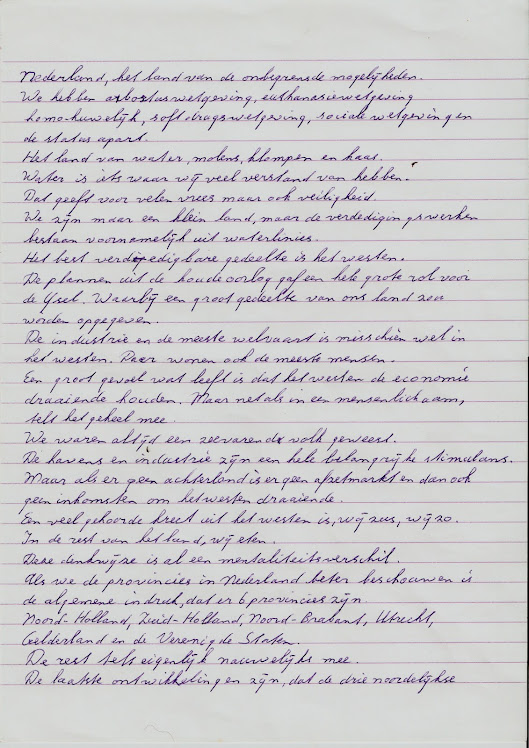 Nederland, het land van de onbegrensde mogelijkheden.
We hebben arbortuswetgeving, euthanasiewetgeving
homo-huwelijk, softdrugswetgeving, sociale wetgeving en
de status apart.
Het land van water, molens, klompen en kaas.
Water is iets waar wij veel verstand van hebben.
Dat geeft voor velen vrees maar ook veiligheid.
We zijn maar een klein land, maar de verdedigingswerken
bestaan voornamelijk uit waterlinies.
Het best verdedigbare gedeelte is het westen.
De plannen uit de koude oorlog gaf een hele grote rol voor
de IJsel. Waarbij een groot gedeelte van ons land zou
worden opgegeven.
De industrie en de meeste welvaart is misschien wel in
het westen. Daar wonen ook de meeste mensen.
Een groot gevoel wat leeft is dat het westen de economie
draaiende houden. Maar net als in een menselichaam,
telt het geheel mee.
We waren altijd een zeevarende volk geweest.
De havens en industrie zijn een hele belangrijke stimulans.
Maar als er geen achterland is er geen afzetmarkt en dan ook
geen inkomsten om het westen draaiende.
Een veel gehoorde kreet uit het westen is, wij zus, wij zo.
In de rest van het land, wij eten.
Deze denkwijze is al een mentaliteitsverschil.
Als we de provincies in Nederland beter beschouwen is
de algemene indruk, dat er 6 provincies zijn
Noord-Holland, Zuid-Holland, Noord-Brabant, Utrecht,
Gelderland en de Verenigde Staten.
De rest telt eigenlijk nauwelijks mee.
De laatste ontwikkelingen zijn, dat de drie noordelijkse